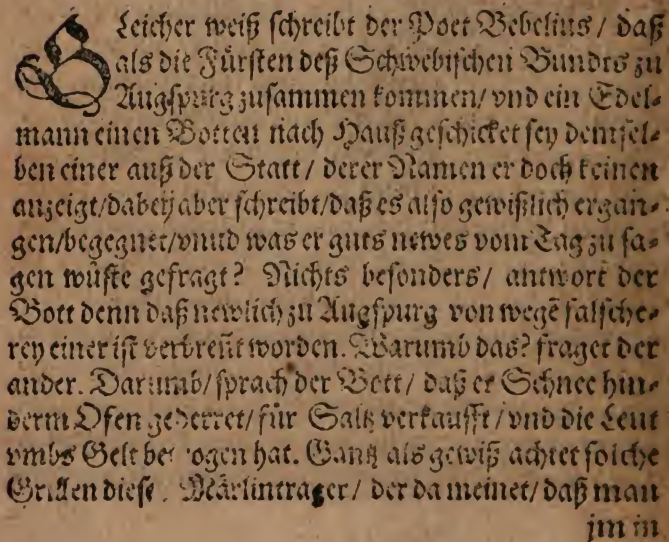 Gleicher weiß schreibt der Poet Bebelius / daß
als die Fürsten deß Schwebischen Bundts zu
Augspurg zusammen kommen / vnd ein Edel⸗
mann einen Botten nach Hauß geschicket sey demsel⸗
ben einer auß der Statt / derer Namen er doch keinen
anzeigt / dabey aber schreibt / daß es also gewißlich ergan⸗
gen / begegnet / vnnd was er guts newes vom Tag zu sa⸗
gen wüste gefragt? Nichts besonders / antwort der
Bott denn daß newlich zu Augspurg von wegē falsche⸗
rey einer ist verbreñt worden. Warumb das? fraget der
ander. Darumb / sprach der Bott / daß er Schnee hin⸗
derm Ofen gederret / für Saltz verkaufft / vnd die Leut
vmbs Gelt betrogen hat. Gantz als gewiß achtet solche
Grillen diese Märlintrager / der da meinet / daß man
jm in